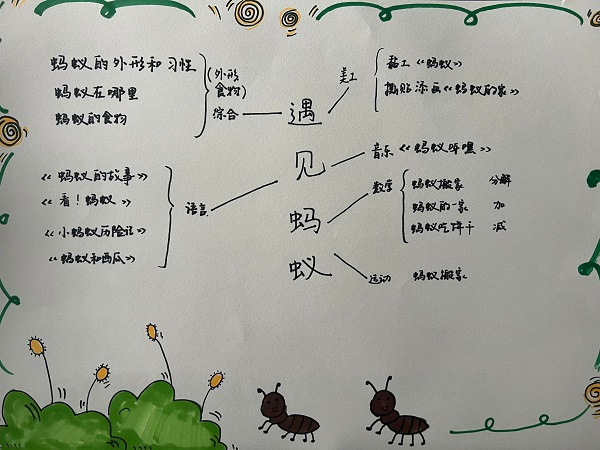 蚂蚁的外形和习性
蚂蚁在哪里
蚂蚁的食物
(外形
食物)
综合
《蚂蚁的故事》
《看!蚂蚁》
《小蚂蚁历险记》
《蚂蚁和西瓜》
语言
遇
见
蚂
蚁
美工
黏工《蚂蚁》
撕贴添画《蚂蚁的家》
音乐《蚂蚁呀嘿》
数学
蚂蚁搬家 分解
蚂蚁的一家 加
蚂蚁吃饼干 减
运动 蚂蚁搬家